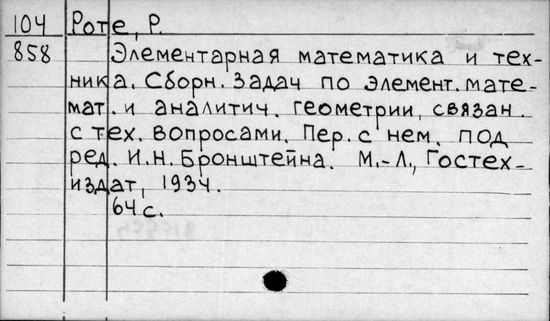 104 Роте, Р.
858 Элементарная математика и тех-
ника. Сборн. задач по элемент. мате-
мат. и аналитич. геометрии, связан.
с тех. вопросами. Пер. с нем. под
ред. И.Н. Бронштейна. М.-Л., Гостех-
издат, 1934.
64 с.